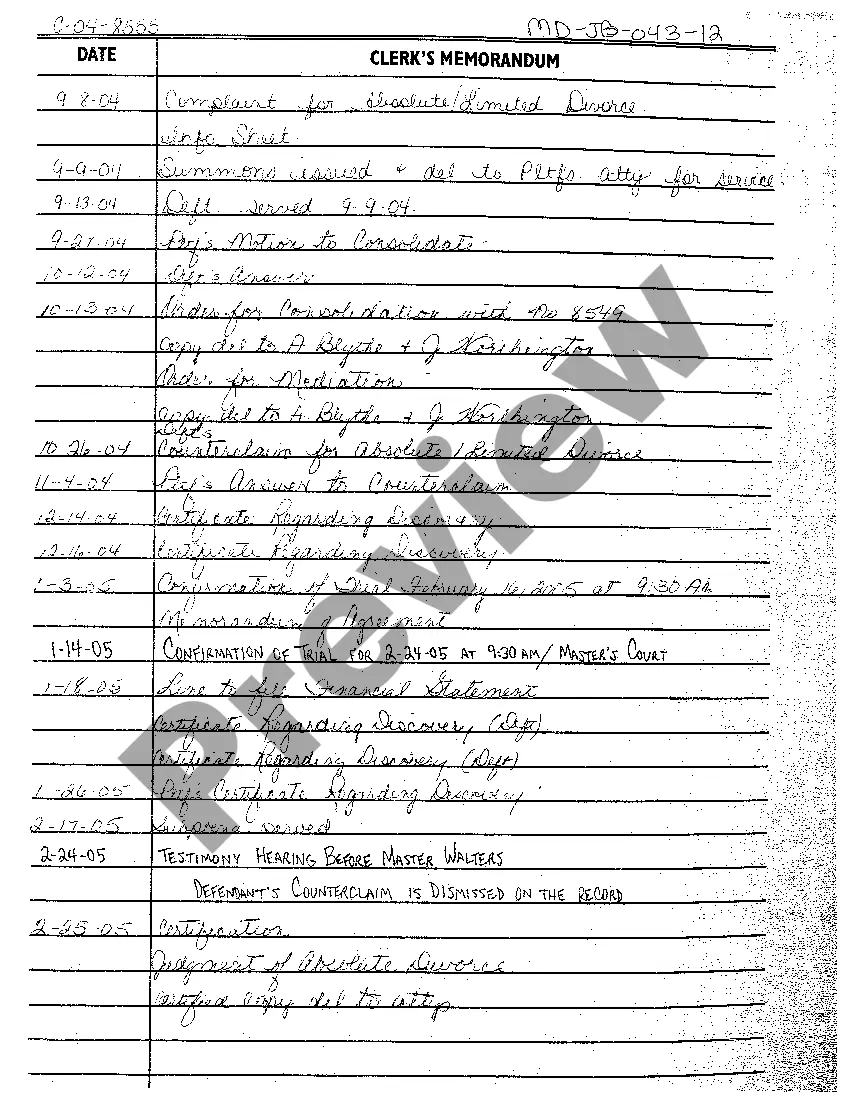 C-04-8555 MD-JB-043-12
DATE CLERK'S MEMORANDUM
9-8-04 Complaint for Absolute/Limited Divorce
Info Sheet
9-9-04 Summons issued & del to Pltfs atty for service
9-13-04 Deft served 9-9-04.
9-27-04 Plf's Motion to Consolidate
10-12-04 Def's Answer
10-13-04 Order for Consolidation with No 8549
Copy del to A Blythe & J Northington
Order for Mediation
Copy del to A. Blythe & J Northington
Deft's
10-26-04 Counterclaim for Absolute/Limited Divorce
11-4-04 Plf's Answer to Counterclaim
12-14-04 Certificate Regarding Discovery
12-16-04 Certificate Regarding Discovery
1-3-05 Confirmation of Trial February 16, 2005 at 9:30 AM
Memorandum of Agreement
1-14-05 CONFIRMATION OF TRIAL FOR 2-24-05 AT 9:30 AM/ MASTER'S COURT
1-18-05 Line to file Financial Statement
Certificate Regarding Discovery (Deft)
Certificate Regarding Discovery (Deft)
1-26-05 Plf's Certificate Regarding Discovery
2-17-05 Subpoena served
2-24-05 TESTIMONY HEARING BEFORE MASTER WALTERS
DEFENDANT'S COUNTERCLAIM IS DISMISSED ON THE RECORD
2-25-05 Certification
Judgment of Absolute Divorce
Certified Copy del to attys
Preview